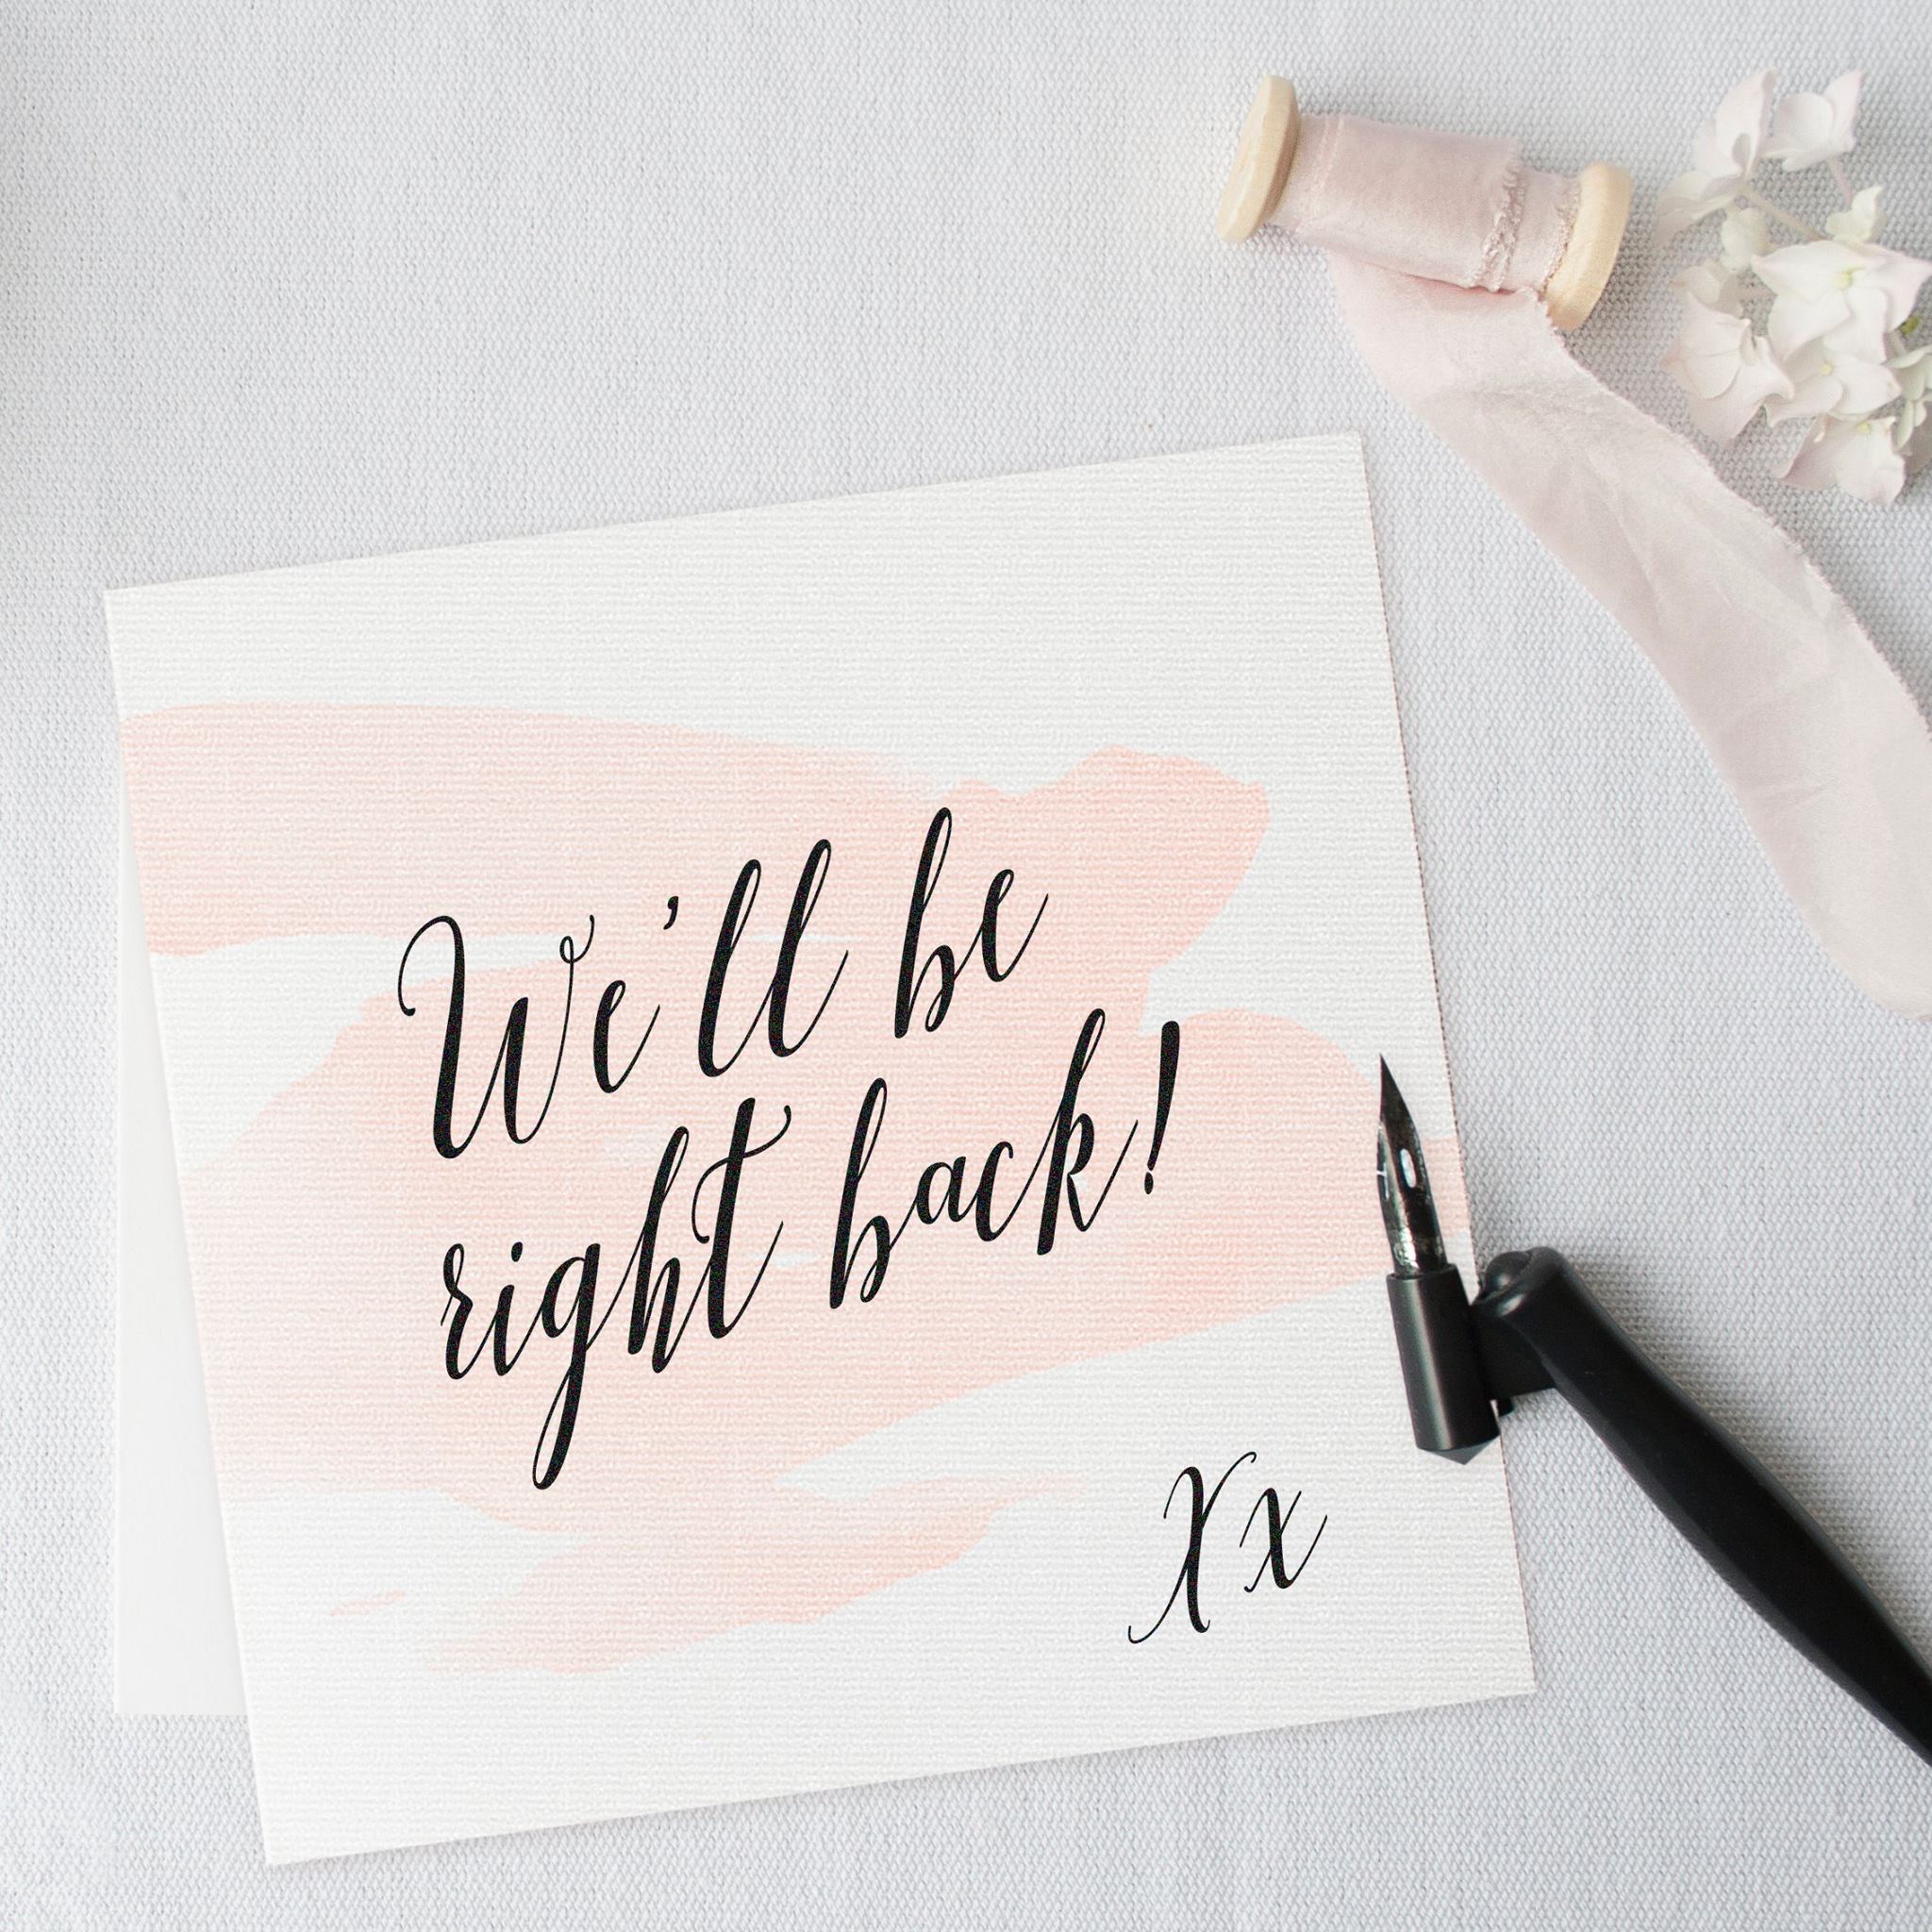 We'll be
right back!
Xx